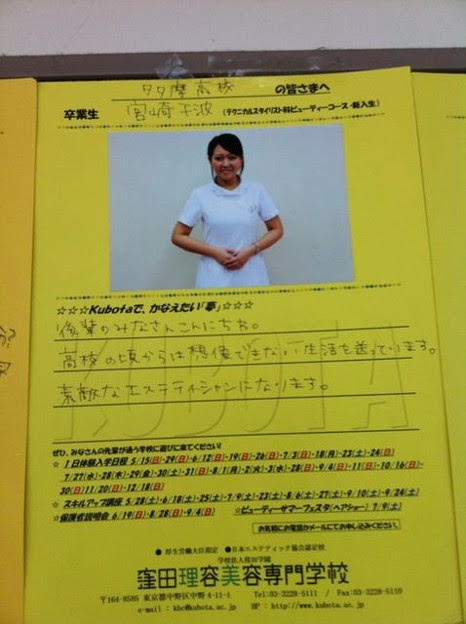 多摩高校 の皆さまへ
卒業生 宮崎千波 (テクニカル&スタイリスト科ビューティーコース・新入生)
☆☆☆Kubotaで、かなえたい「夢」☆☆☆
後輩のみなさんこんにちわ。
高校の頃からは想像できない生活を送っています。
素敵なエステティシャンになります。
KUBOTA
ぜひ、みなさんの先輩が通う学校に遊びに来てください!
☆ 1日体験入学日程 5/15(日)・29(日)・6/12(日)・19(日)・26(日)・7/3(日)・18(月)・23(土)・24(日)
7/27(水)・28(木)・29(金)・30(土)・31(日)・8/1(月)・2(火)・3(水)・28(日)・9/4(日)・11(日)・10/16(日)・
30(日)11/20(日)・12/18(日)
☆ スキルアップ講座 5/28(土)・6/18(土)・25(土)・7/9(土)・23(土)・8/6(土)・27(土)・9/10(土)・9/24(土)
☆保護者説明会 6/19(日)・8/28(日)・9/4(日) ☆ビューティーサマーフェスタ(ヘアショー) 7/9(土)
お気軽にお電話かメールにてお申し込みください。
● 厚生労働大臣指定 ●日本エステティック協会認定校
学校法人窪田学園
窪田理容美容専門学校
〒164-8585 東京都中野区中野4-11-1 Tel:03-3228-5111 / Fax:03-3228-5110
e-mail : kbc@kubota.ac.jp HP : http://www.kubota.ac.jp